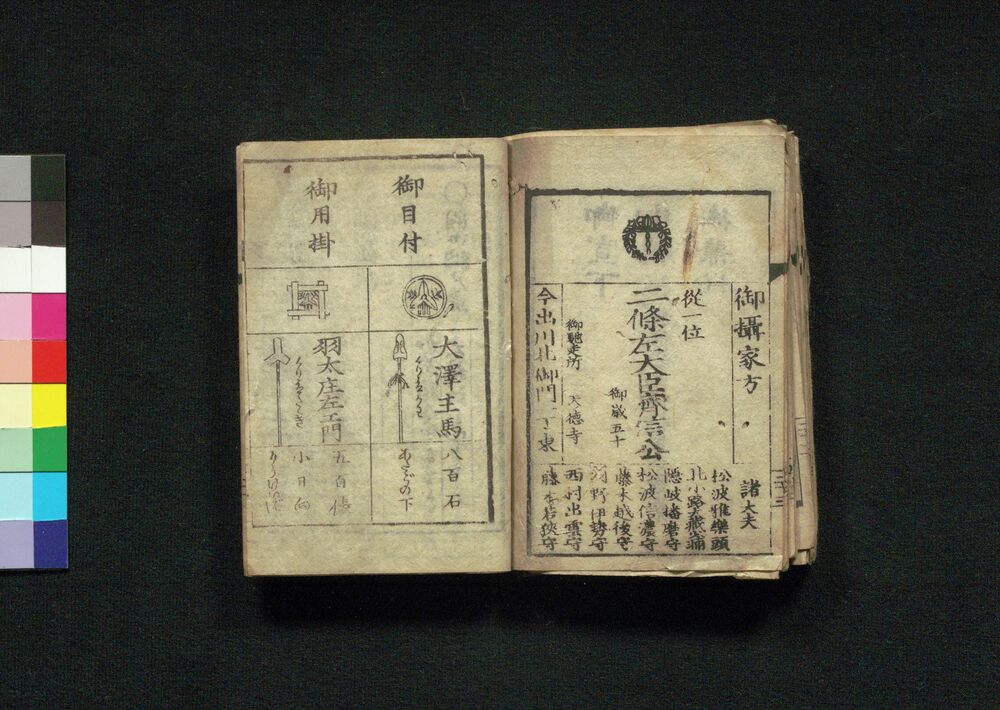 御攝家方
諸太夫
從一位
二條左大臣齊信公
御歳五十
御馳走所
天德寺
今出川北御門
東
松波雅樂頭
北小路大藏
隠岐播磨守
松波信濃守
藤木越後守
河野伊勢守
西村出雲守
藤木若狹守
御目付
大澤主馬
八百石
あたごの下
御用掛
羽太庄左エ門
五百俵
小日向